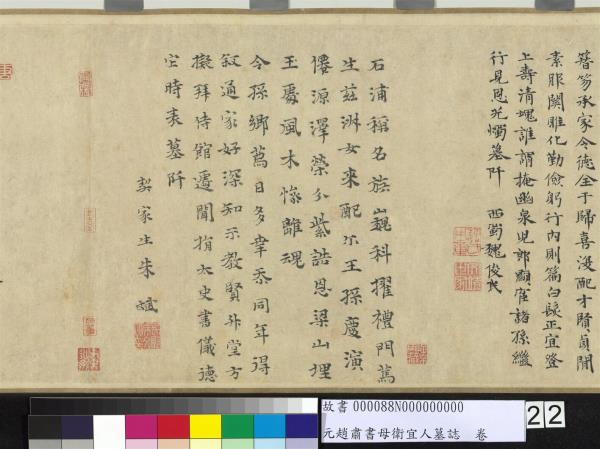 簪笏承家令德全于歸喜沒配才賢貞閒
素服關雎化勤儉躬行內則篇白髮正宜登
上壽清魂誰謂掩幽泉兒郎顯宦諸孫繼
行見恩光燭墓阡 西蜀魏俊民
石浦稱名族巍科擢禮門蔦
生茲淑女來配尔王孫慶演
僊源澤榮分紫誥恩梁山埋
玉處風木慘離魂
令孫鄉薦日多幸忝同年得
敘通家好深知示教賢升堂方
擬拜侍館遽聞捐太史書儀德
它時表墓阡
契家生朱斌
故書 000088N000000000
元趙肅書母衛宜人墓誌 卷
22